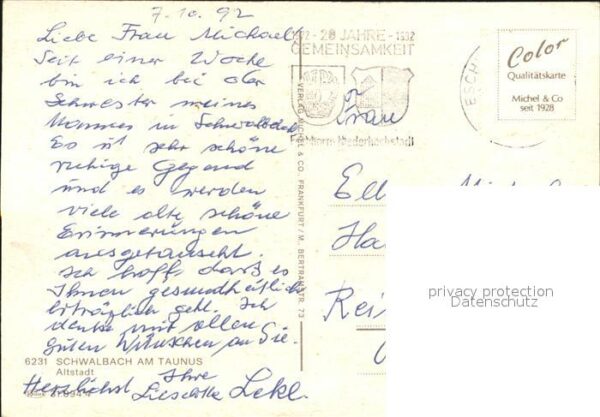 7.10.92
Liebe Frau Michael!
Seit einer Woche
bin ich bei der
Schwester meines
Mannes in Schwalbach
Es ist sehr schöne
ruhige Gegend
und es werden
viele alte schöne
Erinnerungen
ausgetauscht.
Ich hoffe, dass es
Ihnen gesundheitlich
erträglich geht. Ich
denke mit allen
guten Wünschen an Sie.
6231 SCHWALBACH AM TAUNUS
Altstadt
Herzlichst Ihre
Lieselotte
VERLAG MICHEL & CO. FRANKFURT/M. BERTRAMSTR. 73
20 JAHRE
GEMEINSAMKEIT
ESCH
Color
Qualitätskarte
Michel & Co
seit 1928
Frau
Ha
Rei
privacy protection
Datenschutz